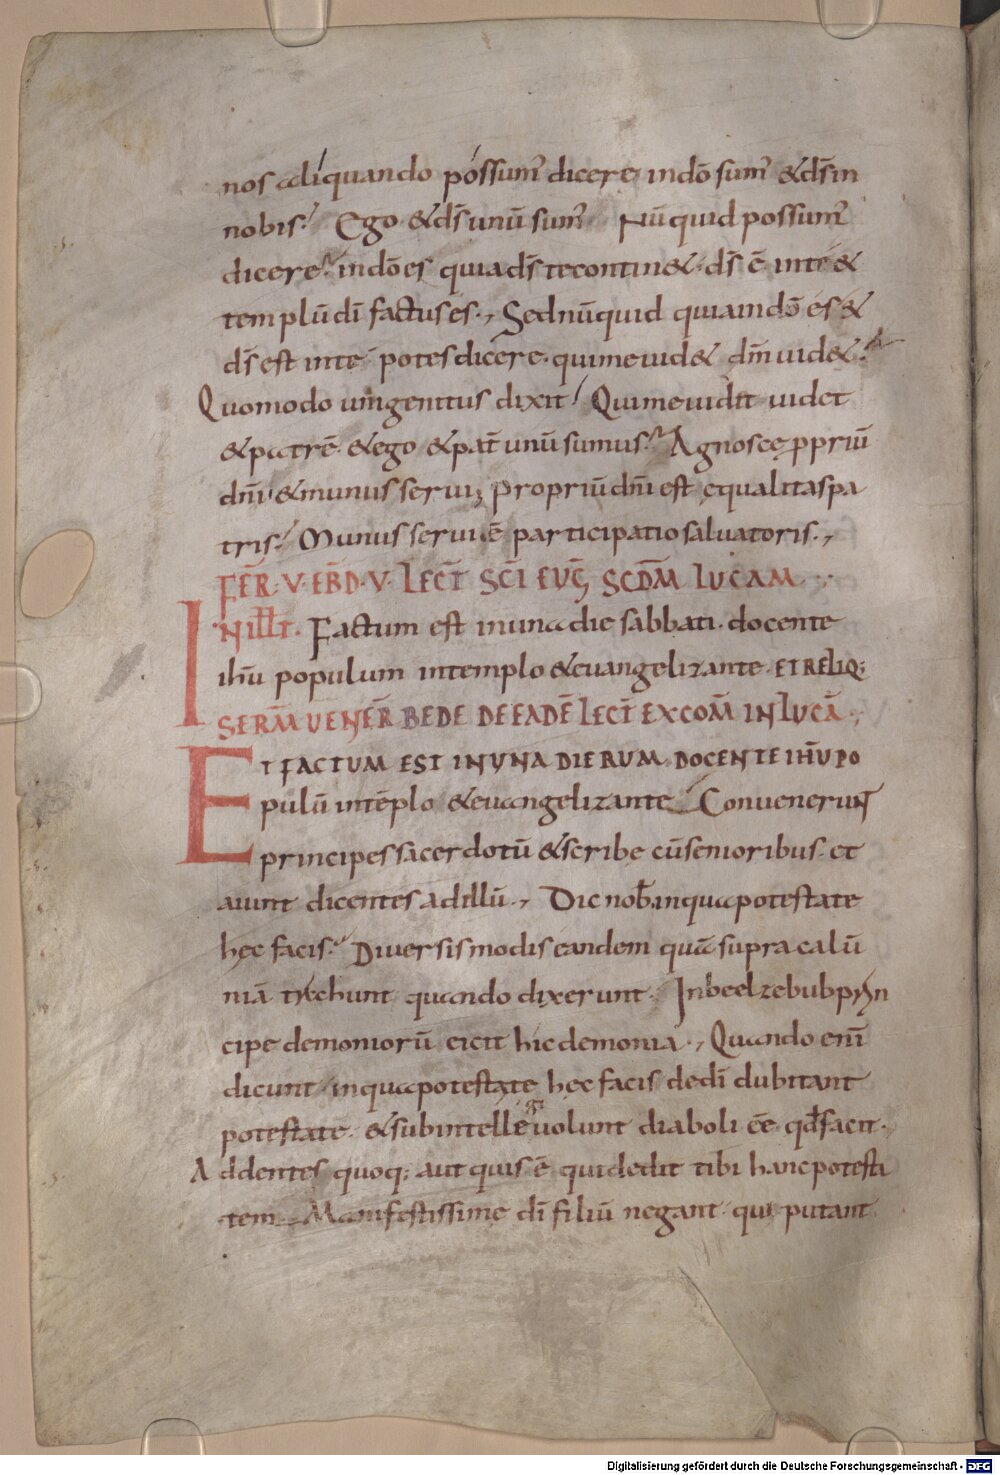 nos aliquando possum᾽ dicere indō sum᾽ &dr̄in
nobis? Ego &dr̄ unū sum᾽ Nūquid possum᾽
dicere? indō es quia dr̄ te contin&· dr̄ ē inte &
templū dī factus es., Sed nūquid quia indō es &
dr̄ est inte potes dicere· qui me uid& dm̄ uid&?
Quomodo unigenitus dixit Qui me uidit uidet
&patrē· &ego &pat̄ unū sumus? Agnosce ppriū
dm̄ &munus serui; Propriū dm̄ est equalitas pa
tris? Munus serui ē participatio saluatoris.,
FER̄·V·EB̄D·V· LEC̄T SC̄I EUG̅ SCD̄M LUCAM
INILLT· Factum est inuna die sabbati· docente
ihū populum intemplo &euangelizante· ET RELIQ:
SERM̄ UENER̄ BEDE DE EADĒ LEC̄T EX COM̄ IN LUCĀ.,
ET FACTUM EST IN UNA DIERUM· DOCENTE IHŪ PO
pulū intēplo &euangelizante Conuenerunt
principes sacerdotū &scribe cū senioribus· et
aiunt dicentes ad illū., Dic nob̄ in qua potestate
hec facis? Diuersis modis eandem quā supra calū
niā t&chunt quando dixerunt· In beelzebub prin
cipe demoniorū eicit hic demonia., Quando enī
dicunt in qua potestate hec facis dedī dubitant
potestate· &subintelle uolunt diaboli ēe qd̄ facit·
Addentes quoq; aut quis ē qui dedit tibi hanc potesta
tem Manifestissime dī filiū negant qui putant
Digitalisierung gefördert durch die Deutsche Forschungsgemeinschaft - DFG